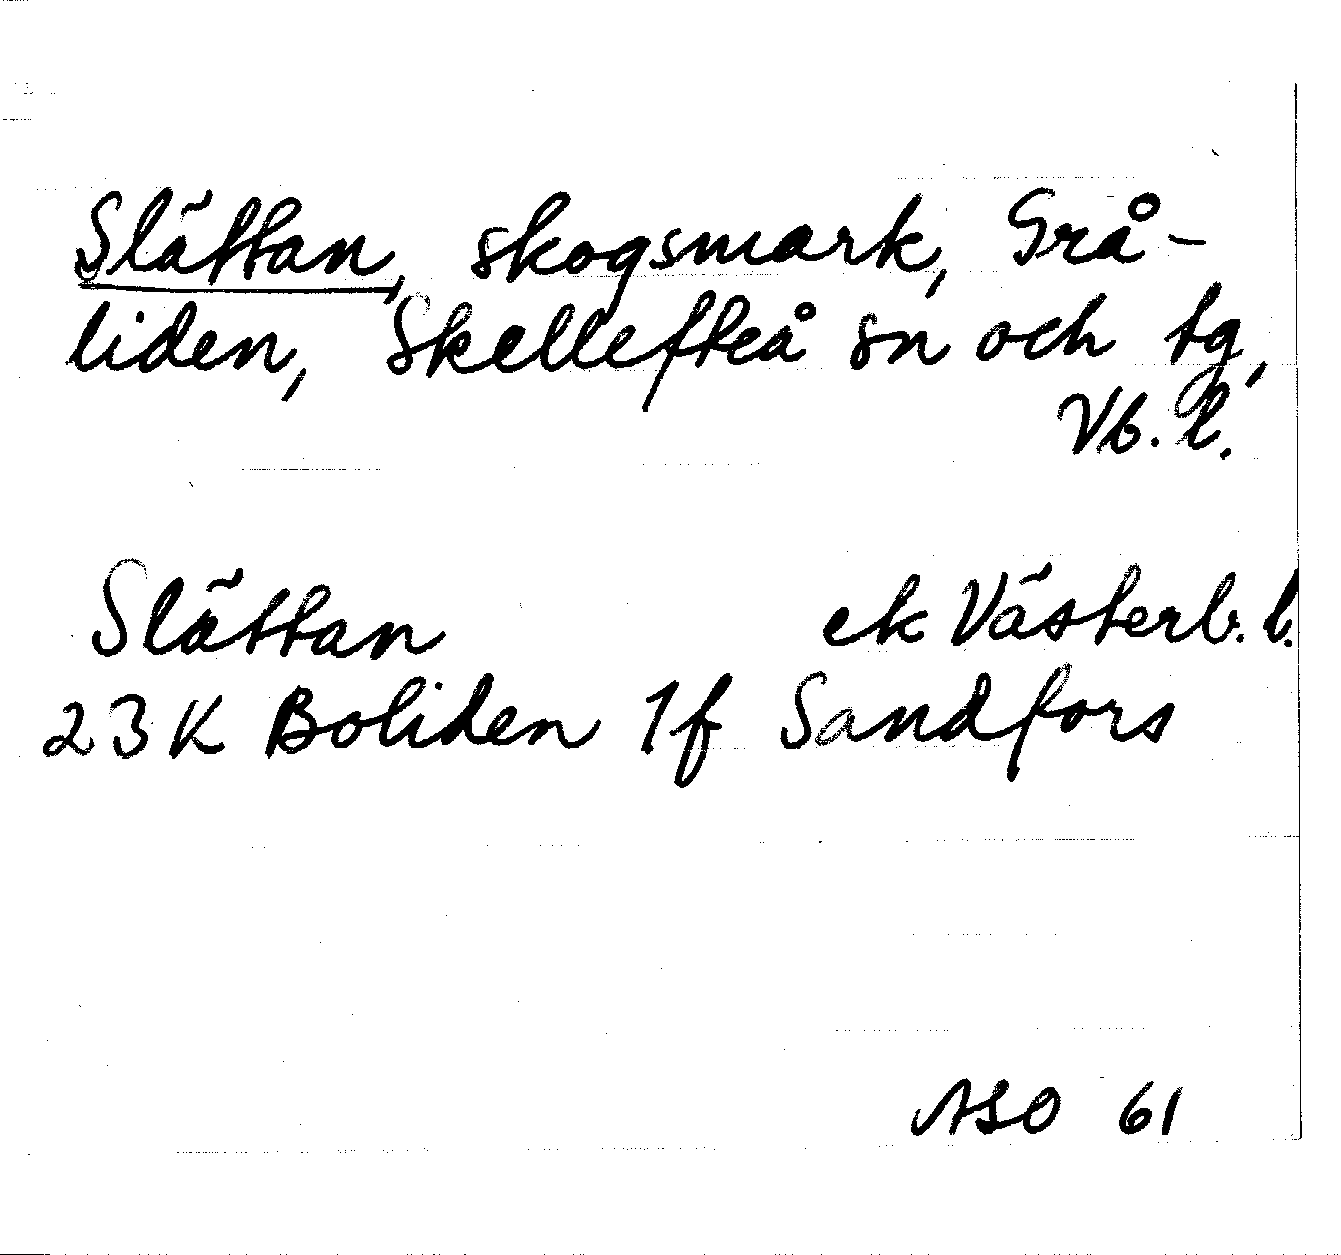 Slättan, skogsmark, Grå-
liden, Skellefteå sn och tg,
Vb. l.
Slättan ek Västerb. l.
23 K Boliden 1f Sandfors
ASO 61